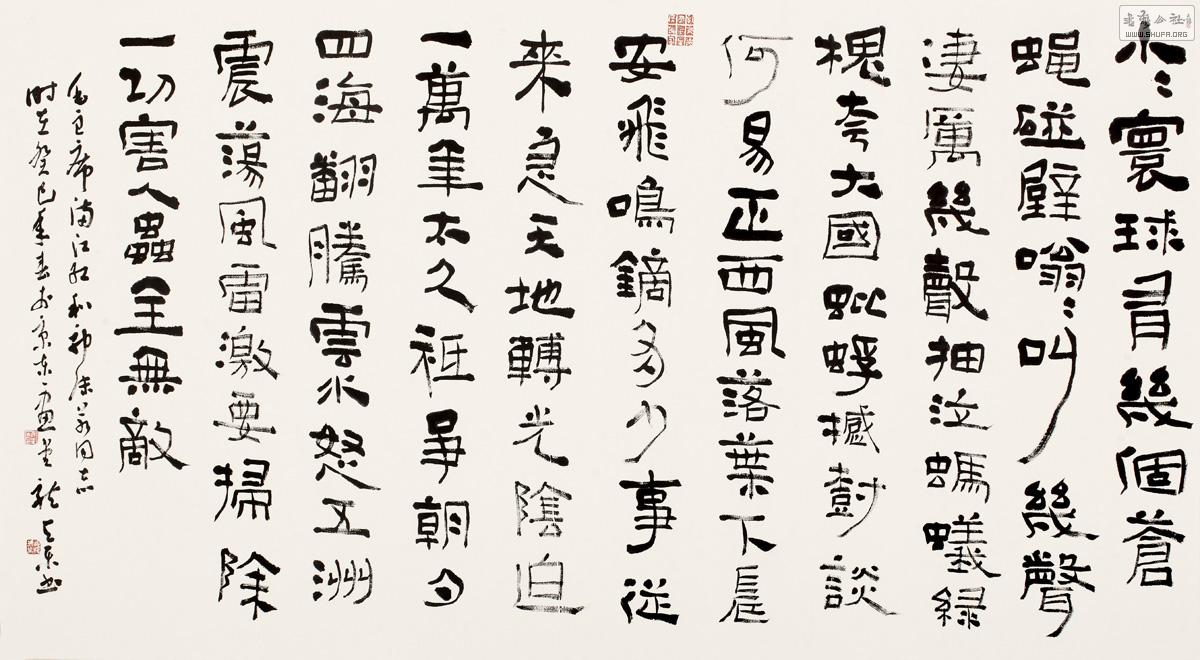 小〻寰球有幾個蒼
蠅碰壁嗡〻叫幾聲
淒厲幾聲抽泣螞蟻緣
槐夸大國蚍蜉撼樹談
何易正西風落葉下長
安飛鳴鏑多少事從
來急天地轉光陰迫
一萬年太久衹爭朝夕
四海翻騰雲水怒五洲
震蕩風雷激要掃除
一切害人蟲全無敵
毛主席滿江紅和郭沫若同志
時在癸巳年春於京東
WWW.SHUFA.ORG